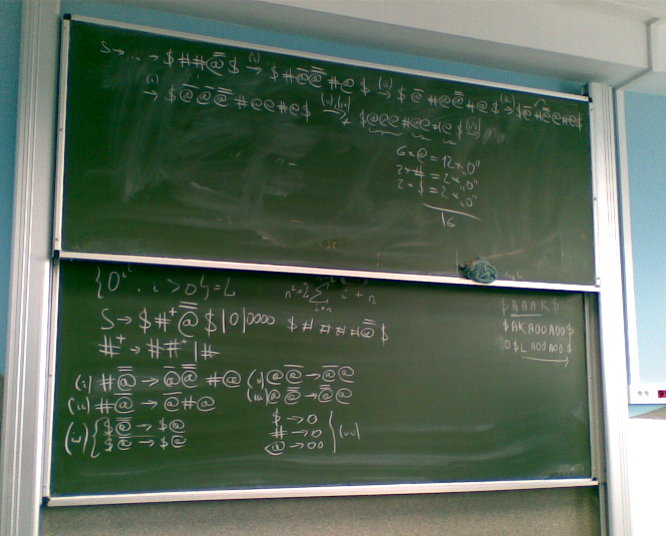 S → .. → $ # # @̿ $ →(i) $ # @̅ @̿ # @ $ →(iii) $ @̅ # @ @̿ # @ $ →(ii) $ @̅ # @̿ @ # @ $
→(i) $ @̅ @̅ @̿ # @ @ # @ $ →(ii),(iv) + $ @ @ @ # @ @ # @ $
6 × @ = 12 × "0"
2 × # = 2 × "0"
2 × $ = 2 × "0"
16
{0^i² . i > 0} = L
S → $ #⁺ @̿ $ | 0 | 0000 $ # # # # @̿ $
#⁺ → # #⁺ | #
(i) # @̿ → @̅ @̿ # @ (ii) @ @̿ → @̿ @
(iii) # @̅ → @̅ # @ (iii) @ @̅ → @̅ @
(iv) { $ @̅ → $ @
$ @̿ → $ @
$ → 0
# → 0 } (iv)
@ → 00
$ A A A K $
$ A K A 0 0 A 0 0 $
0 $ L A 0 0 A 0 0 $